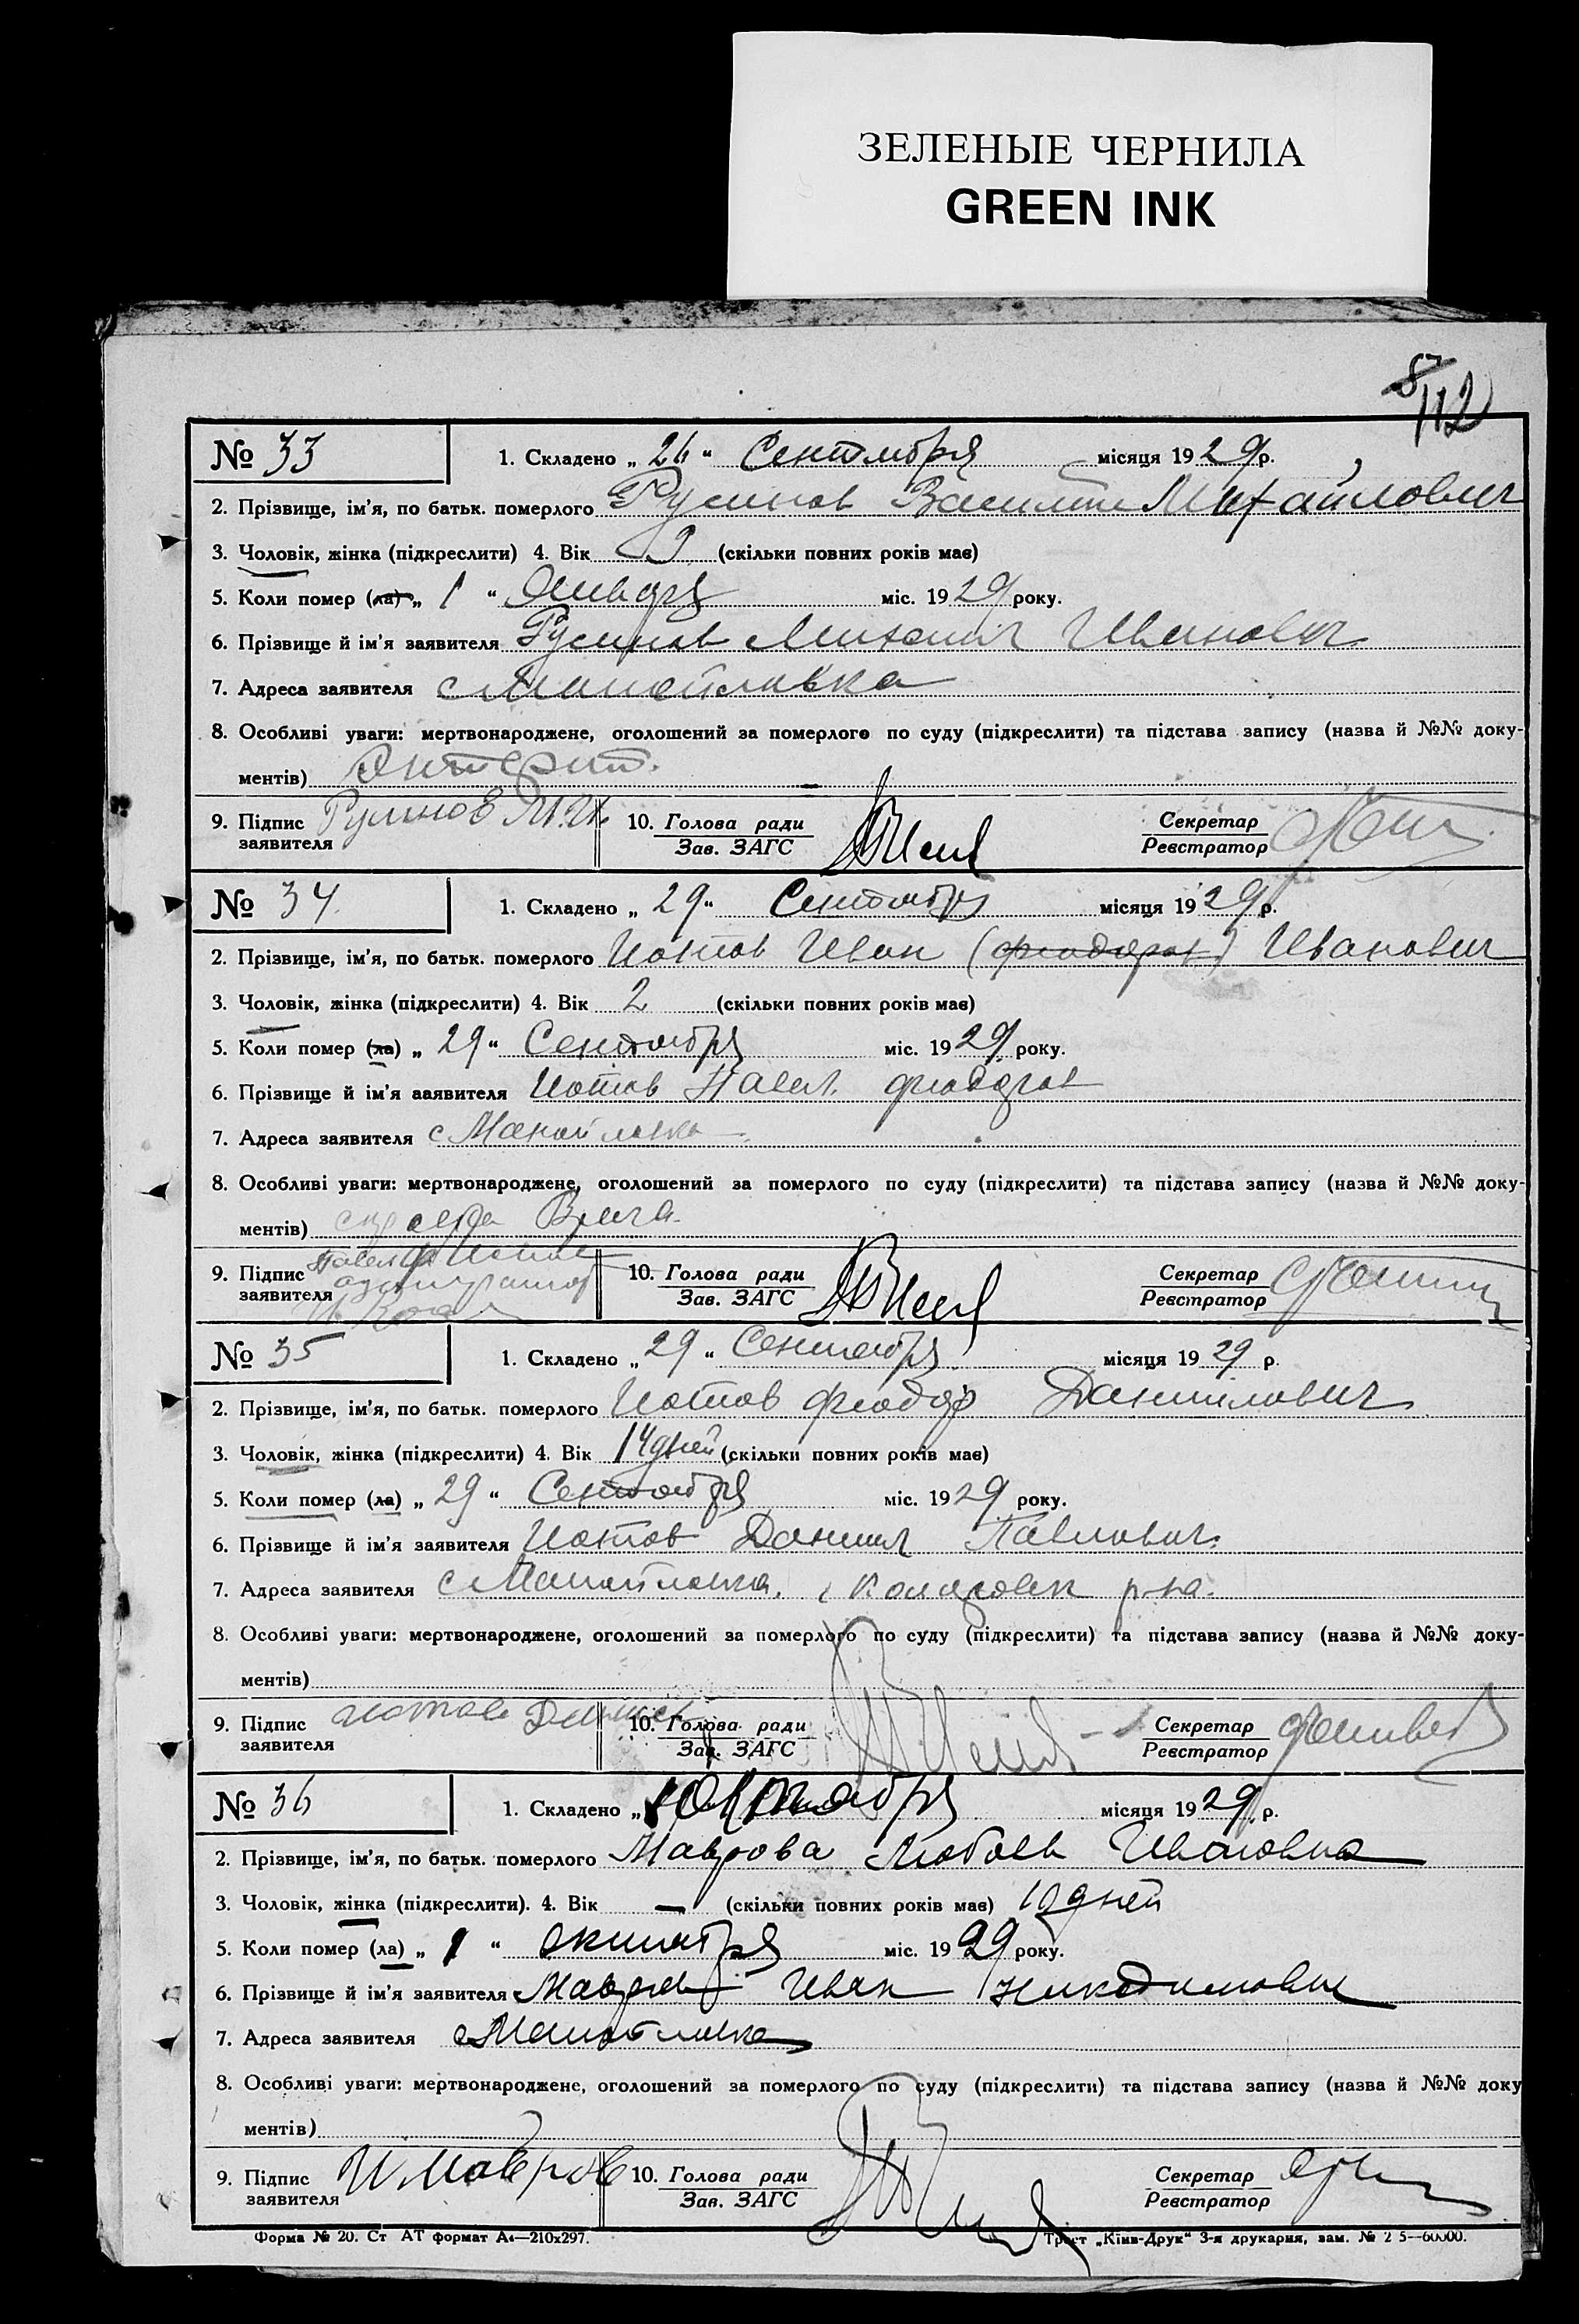 ЗЕЛЕНЫЕ ЧЕРНИЛА
GREEN INK
112
№ 33 1. Складено „ 26 “ Сентября місяця 1929 р.
2. Прізвище, ім'я, по батьк. померлого Русинов Василий Михайлович
3. Чоловік, жінка (підкреслити) 4. Вік 9 (скільки повних років має)
5. Коли помер (ла) „ 1 “ Января міс. 1929 року.
6. Прізвище й ім'я заявителя Русинов Михаил Иванович
7. Адреса заявителя с Манойловка
8. Особливі уваги: мертвонароджене, оголошений за померлого по суду (підкреслити) та підстава запису (назва й №№ доку-
ментів) Энтерит.
9. Підпис заявителя Русинов М.И. 10. Голова ради Зав. ЗАГС Секретар Реєстратор
№ 34 1. Складено „ 29 “ Сентября місяця 1929 р.
2. Прізвище, ім'я, по батьк. померлого Иотов Иван (феодоров) Иванович
3. Чоловік, жінка (підкреслити) 4. Вік 2 (скільки повних років має)
5. Коли помер (ла) „ 29 “ Сентября міс. 1929 року.
6. Прізвище й ім'я заявителя Иотов Павел феодоров
7. Адреса заявителя с Манойловка
8. Особливі уваги: мертвонароджене, оголошений за померлого по суду (підкреслити) та підстава запису (назва й №№ доку-
ментів) справка Врача
9. Підпис заявителя Павел 10. Голова ради Зав. ЗАГС Секретар Реєстратор
№ 35 1. Складено „ 29 “ Сентября місяця 1929 р.
2. Прізвище, ім'я, по батьк. померлого Иотов феодор Даниилович
3. Чоловік, жінка (підкреслити) 4. Вік 14 дней (скільки повних років має)
5. Коли помер (ла) „ 29 “ Сентября міс. 1929 року.
6. Прізвище й ім'я заявителя Иотов Даниил Павлович
7. Адреса заявителя с Манойловка, р-на.
8. Особливі уваги: мертвонароджене, оголошений за померлого по суду (підкреслити) та підстава запису (назва й №№ доку-
ментів)
9. Підпис заявителя Иотов 10. Голова ради Зав. ЗАГС Секретар Реєстратор
№ 36 1. Складено „ місяця 1929 р.
2. Прізвище, ім'я, по батьк. померлого Маврова Любовь Ивановна
3. Чоловік, жінка (підкреслити). 4. Вік — (скільки повних років має) 10 дней
5. Коли помер (ла) „ 1 “ октября міс. 1929 року.
6. Прізвище й ім'я заявителя Мавров Иван Никодимович
7. Адреса заявителя с Манойловка
8. Особливі уваги: мертвонароджене, оголошений за померлого по суду (підкреслити) та підстава запису (назва й №№ доку
ментів)
9. Підпис заявителя И Мавров 10. Голова ради Зав. ЗАГС Секретар Реєстратор
Форма № 20. Ст АТ формат А4—210х297. Трест „Київ-Друк“ 3-я друкарня, зам. №